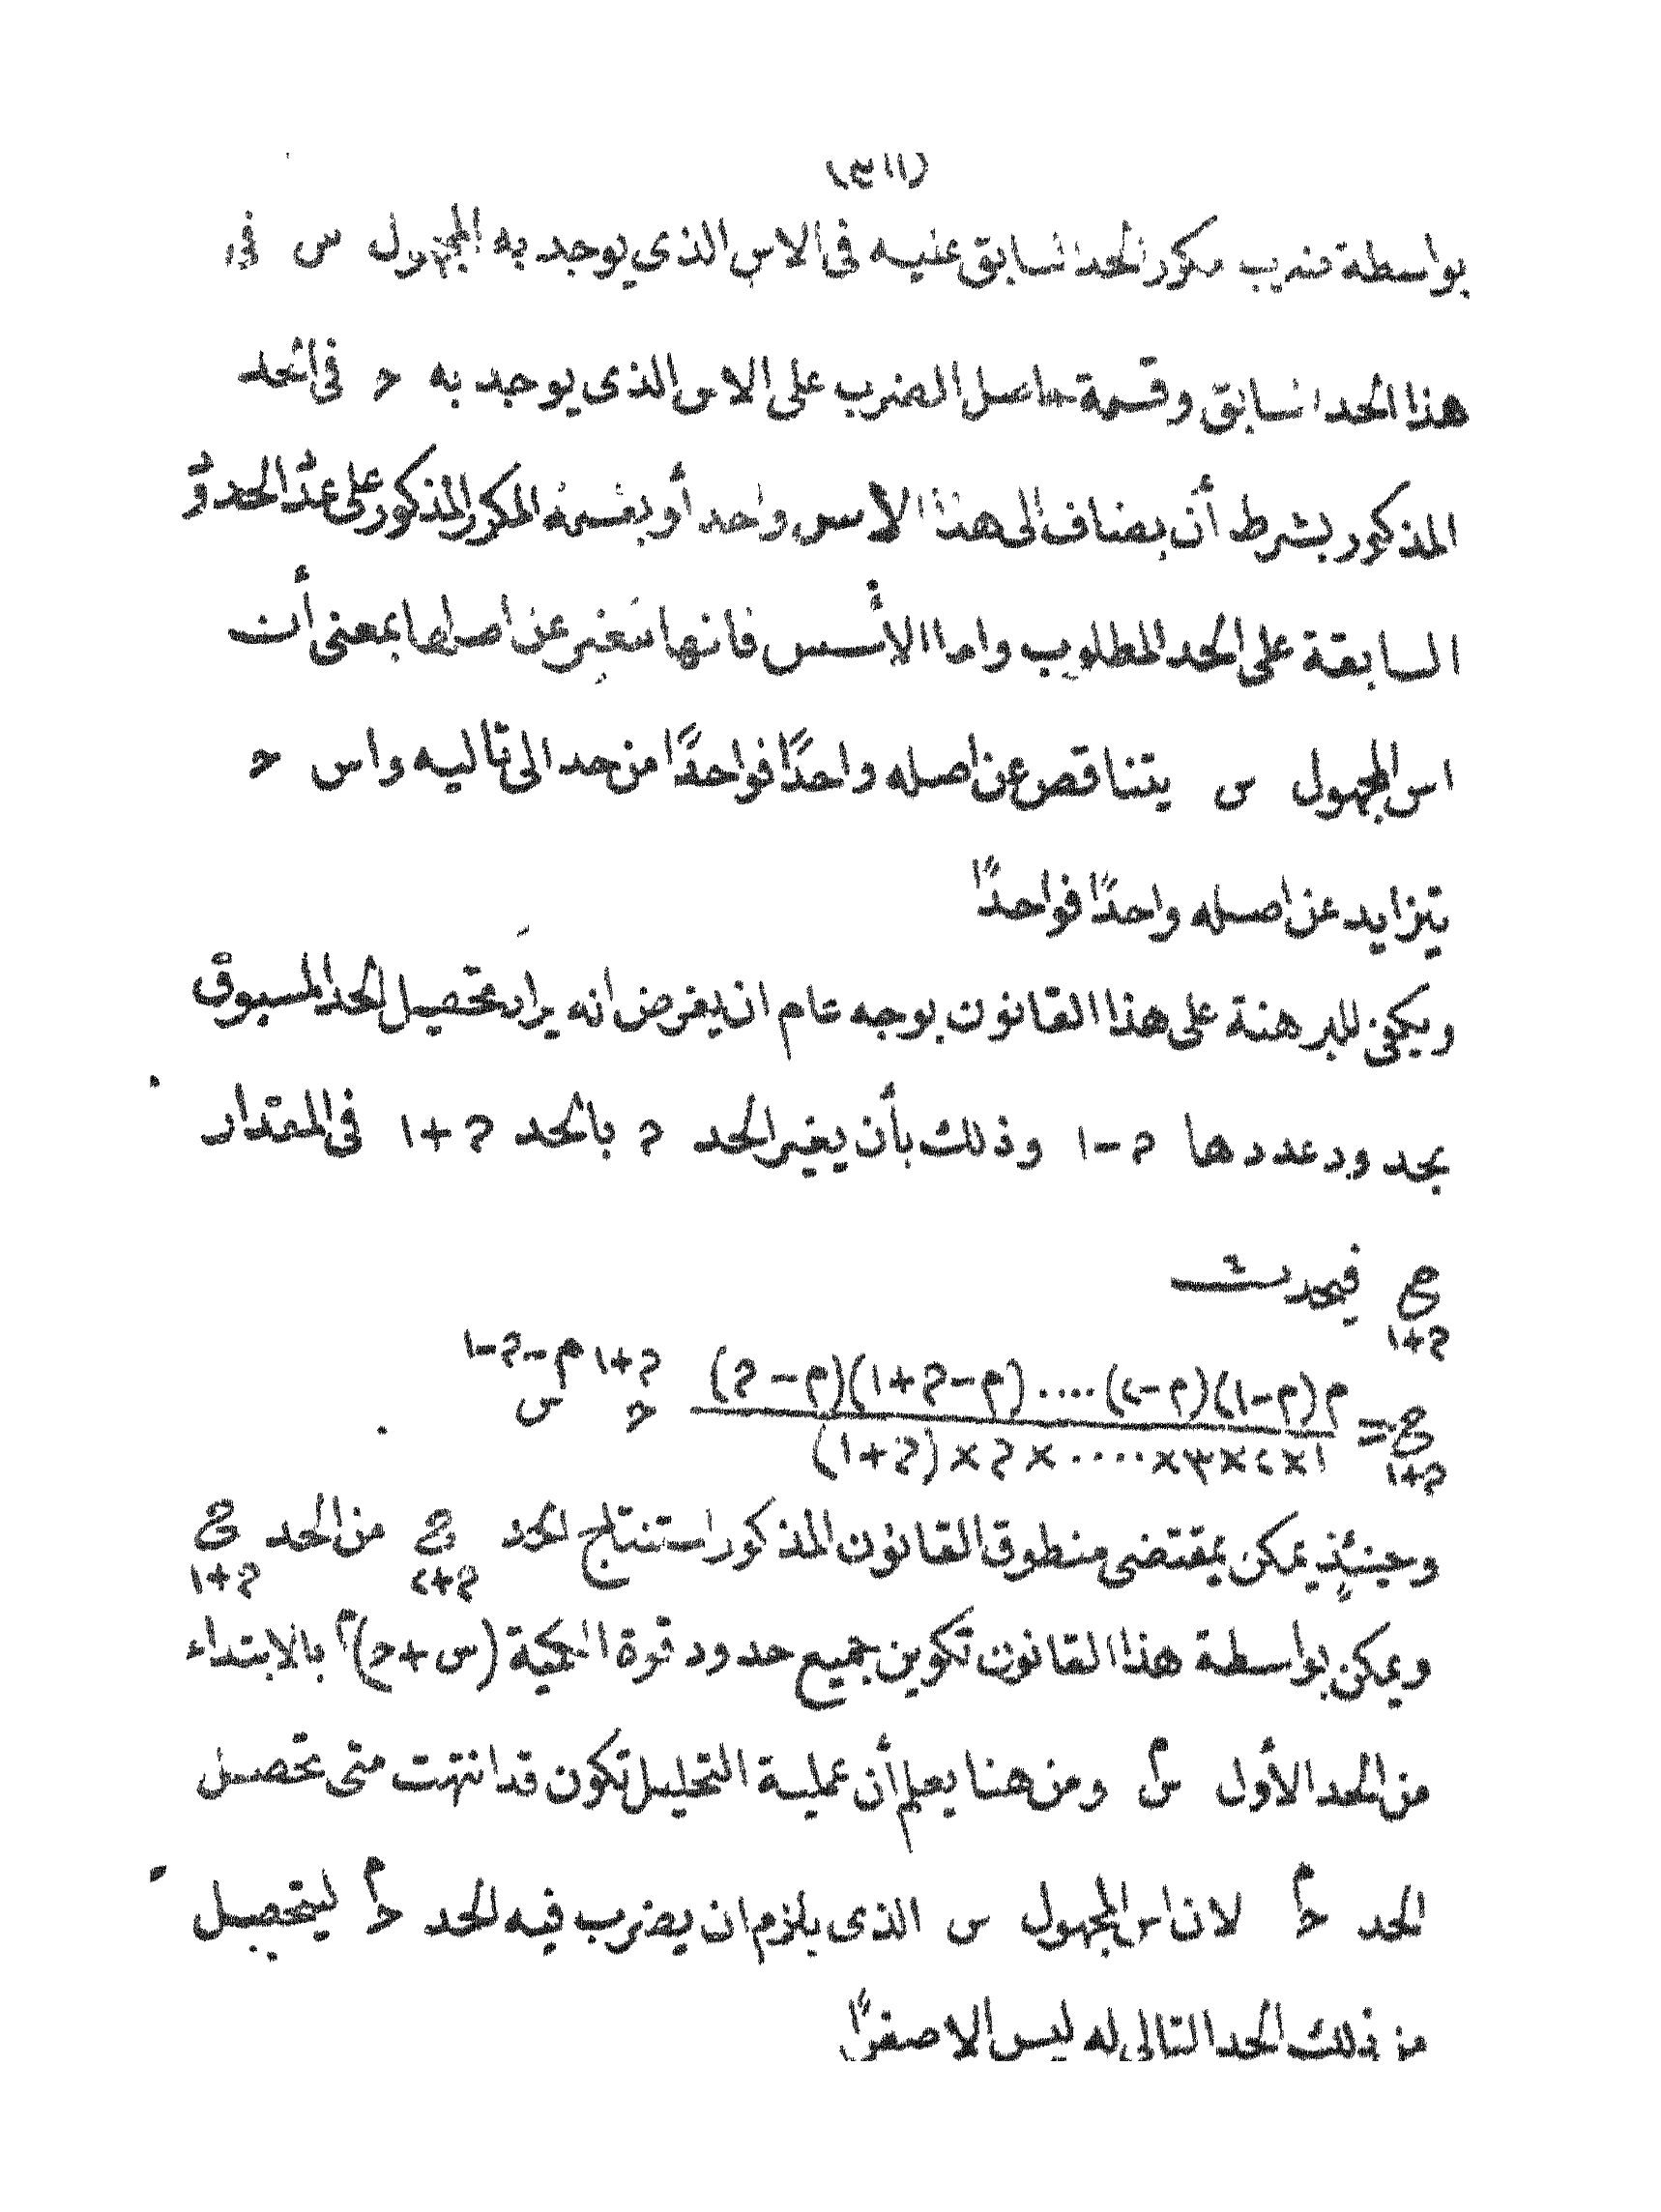 (٣١١)
بواسطة ضرب مكرر الحد السابق عليه فى الاس الذى يوجد به المجهول س فى
هذا الحد السابق وقسمة حاصل الضرب على الاس الذى يوجد به ح فى الحد
المذكور بشرط أن يضاف الى هذا الاس واحد أو بقسمة المكرر المذكور على عدّ الحدود
السابقة على الحد المطلوب واما الأسس فانها تتغير عن اصلها بمعنى أن
اس المجهول س يتناقص عن اصله واحدًا فواحدًا من حد الى تاليه واس ح
يتزايد عن اصله واحدًا فواحدًا
ويكفى للبرهنة على هذا القانون بوجه عام ان يفرض انه يراد تحصيل الحد المسبوق
بحدود عددها ﯾ-١ وذلك بأن يغير الحد ﯾ بالحد ﯾ+١ فى المقدار
ع ﯾ+١ فيحدث
ع ﯾ+١ = م(م-١)(م-٢)....(م-ﯾ+١)(م-ﯾ) / ١×٢×٣×....×ﯾ×(ﯾ+١) ح ﯾ+١ س م-ﯾ-١
وحينئذٍ يمكن بمقتضى منطوق القانون المذكور استنتاج الحد ع ﯾ+٢ من الحد ع ﯾ+١
ويمكن بواسطة هذا القانون تكوين جميع حدود قوة الكمية (س+ح)م بالابتداء
من الحد الأول سم ومن هنا يعلم أن عملية التحليل تكون قد انتهت متى تحصل
الحد حم لان اس المجهول س الذى يلزم ان يضرب فيه الحد حم ليتحصيل
من ذلك الحد التالى له ليس الا صفرًا